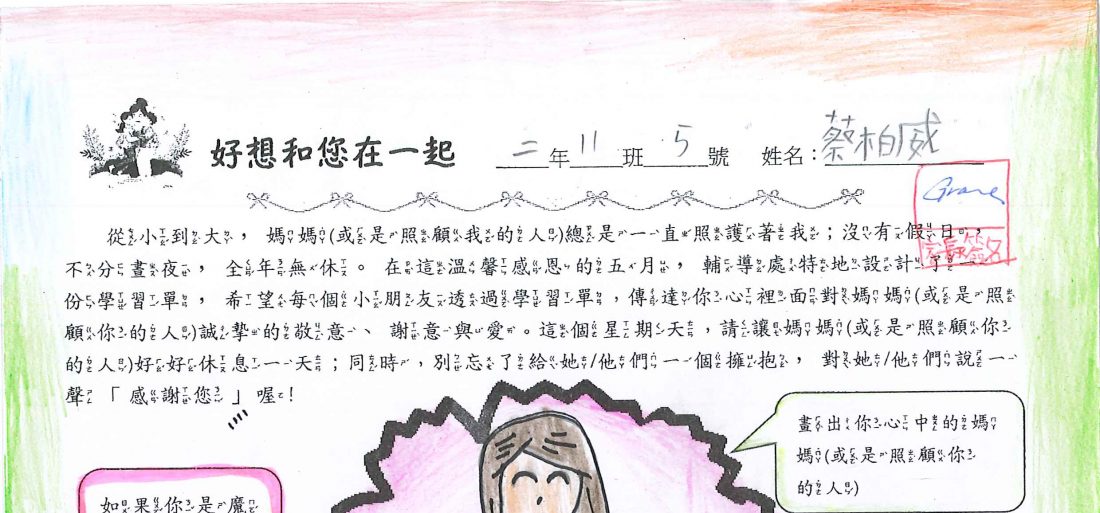 好想和您在一起 二年11班5號 姓名:蔡柏威
Grace
家長簽名
從小到大,媽媽(或是照顧我的人)總是一直照護著我;沒有假日,
不分晝夜,全年無休。在這溫馨感恩的五月,輔導處特地設計了一
份學習單,希望每個小朋友透過學習單,傳達你心裡面對媽媽(或是照
顧你的人)誠摯的敬意、謝意與愛。這個星期天,請讓媽媽(或是照顧你
的人)好好休息一天;同時,別忘了給她/他們一個擁抱,對她/他們說一
聲「感謝您」喔!
畫出你心中的媽
媽(或是照顧你
的人)
如果你是魔